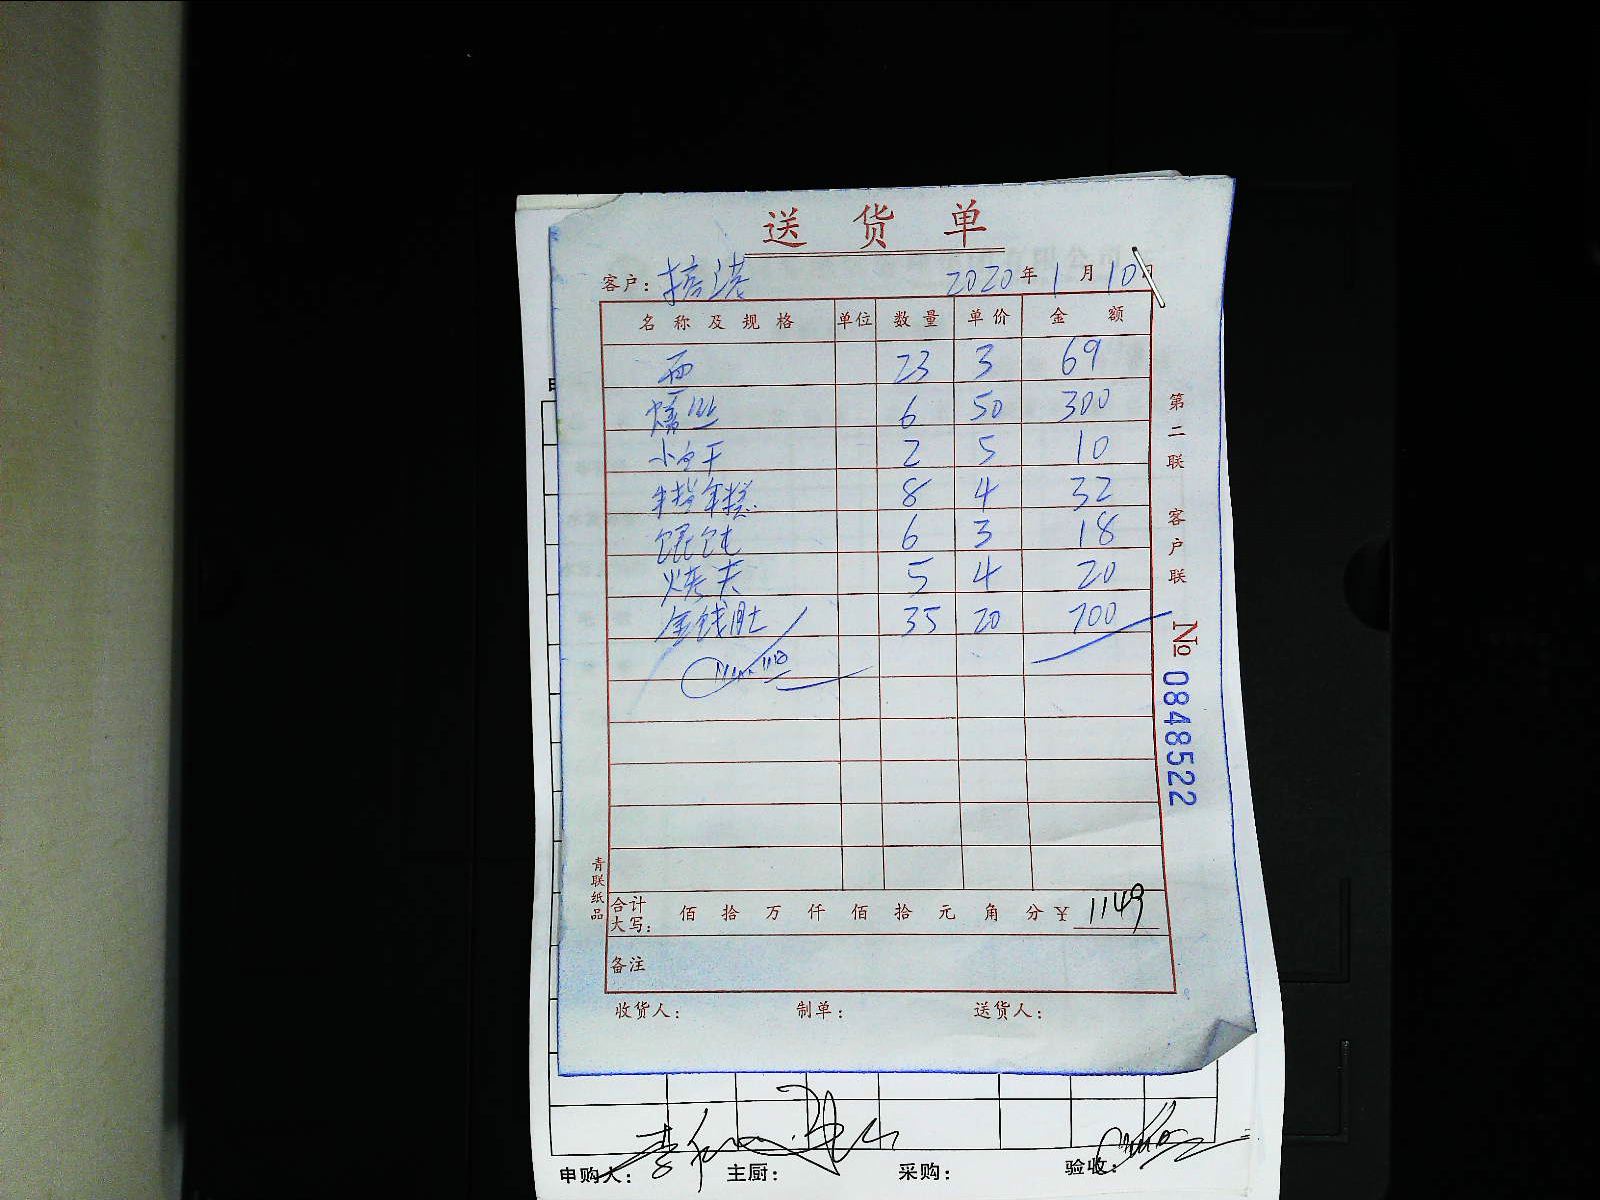 送货单
客户： 2020年1月10日
名称及规格 单位 数量 单价 金额
面 23 3 69
6 50 300
小白干 2 5 10
年糕 8 4 32
馄饨 6 3 18
烤夫 5 4 20
金钱肚 35 20 700
合计大写： 佰 拾 万 仟 佰 拾 元 角 分 ¥ 1149
备注
收货人： 制单： 送货人：
第二联 客户联
№ 0848522
青联纸品
申购人： 主厨： 采购： 验收：